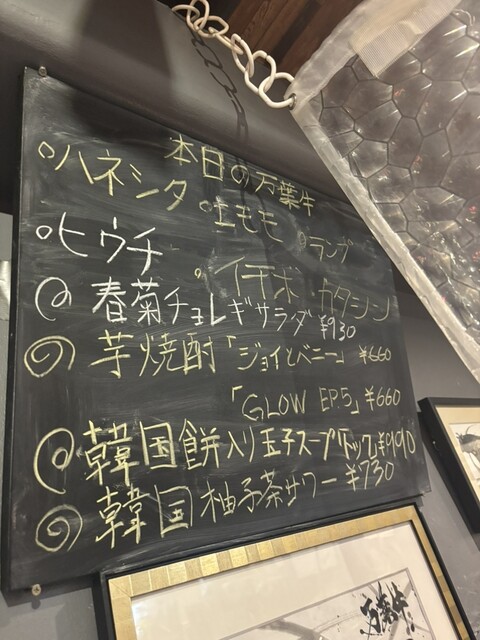 本日の万葉牛
ハネシタ ◦上モモ ランプ
ヒウチ ◦イチボ カタシン
春菊チョレギサラダ ¥930
芋焼酎「ジョイとベニー」 ¥660
「GLOW EP.5」 ¥660
韓国餅入り玉子スープ ¥990
韓国柚子茶サワー ¥730
万葉牛